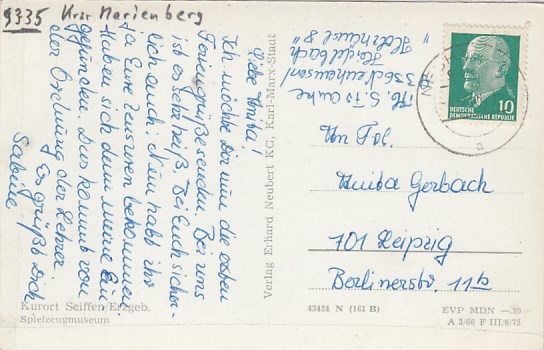 9335 Krsr Marienberg
Liebe Anita!
Ich möchte Dir nun die ersten
Feriengrüße senden. Bei uns
ist es sehr heiß. Bei Euch sicher-
lich auch. Nun habt ihr
ja Eure Zensuren bekommen.
Haben sich denn meine Ein
gefunden. Das kommt von
der Ordnung der Lehrer.
Es grüßt Dich
Sabine
Kurort Seiffen/Erzgeb.
Spielzeugmuseum
Verlag Erhard Neubert KG, Karl-Marx-Stadt
Abs. S.
9336
Haselbach
DEUTSCHE
DEMOKRATISCHE REPUBLIK
10
a
An Frl.
Anita Gerbach
701 Leipzig
Berlinerstr. 11b
43424 N (161 B)
EVP MDN —.20
A 3/66 F III/6/75